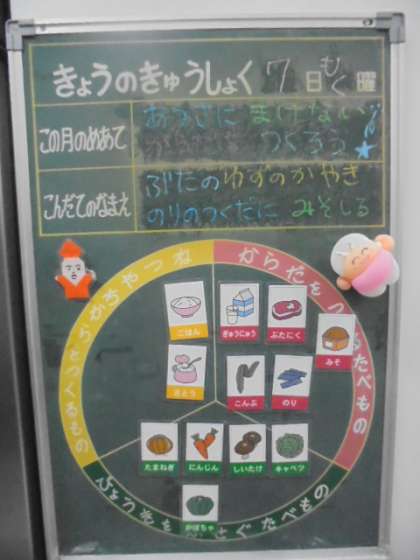 きょうのきゅうしょく 7日 もく曜
この月のめあて
あつさに まけない
つくろう
こんだてのなまえ
ぶたの ゆずのかやき
のりのつくだに みそしる
ちからやねつ
からだをつ
るたべもの
らとつくるもの
ごはん
ぎゅうにゅう
ぶたにく
みそ
さとう
こんぶ
のり
たまねぎ
にんじん
しいたけ
キャベツ
かぼちゃ
ぐたべもの